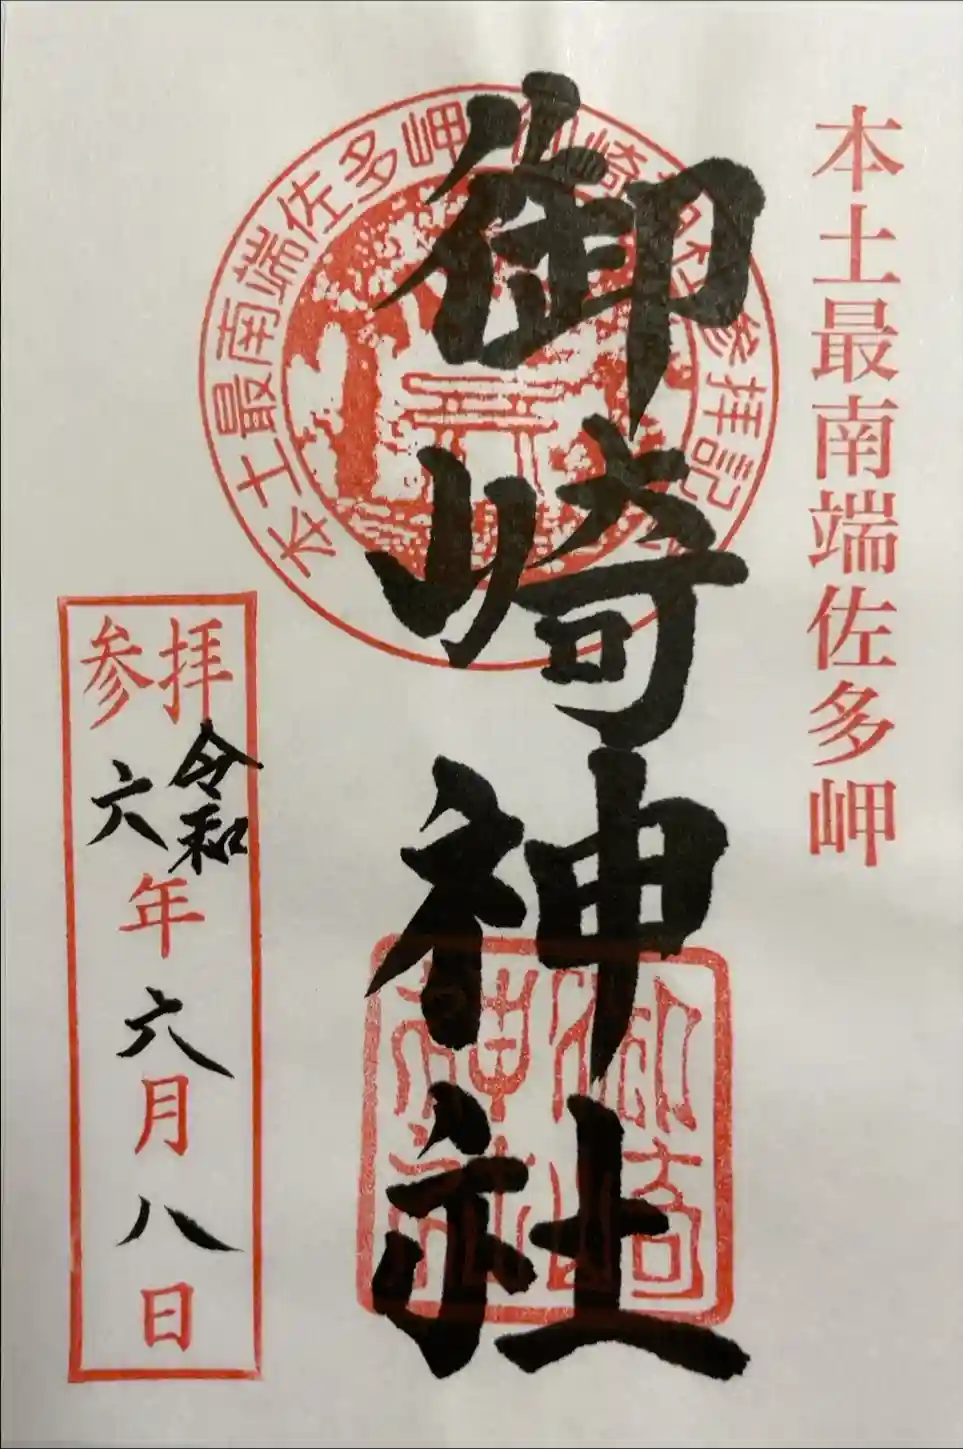 本土最南端佐多岬
御崎神社
本土最南端佐多岬 御崎神社参拝記念
御崎神社
参拝
令和
六年六月八日